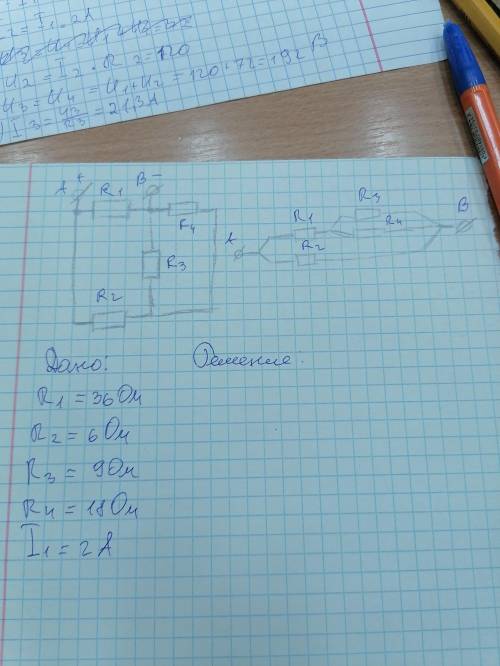 I1 = 2A
U2 = I2 · R2 = 120
U3 = U4 = U1+U2 = 120+72 = 192 В
A + R1 B −
R4
R3
R2
A R1 R3 R4 B
R2
Дано: Решение.
R1 = 36 Ом
R2 = 6 Ом
R3 = 9 Ом
R4 = 18 Ом
I1 = 2 А